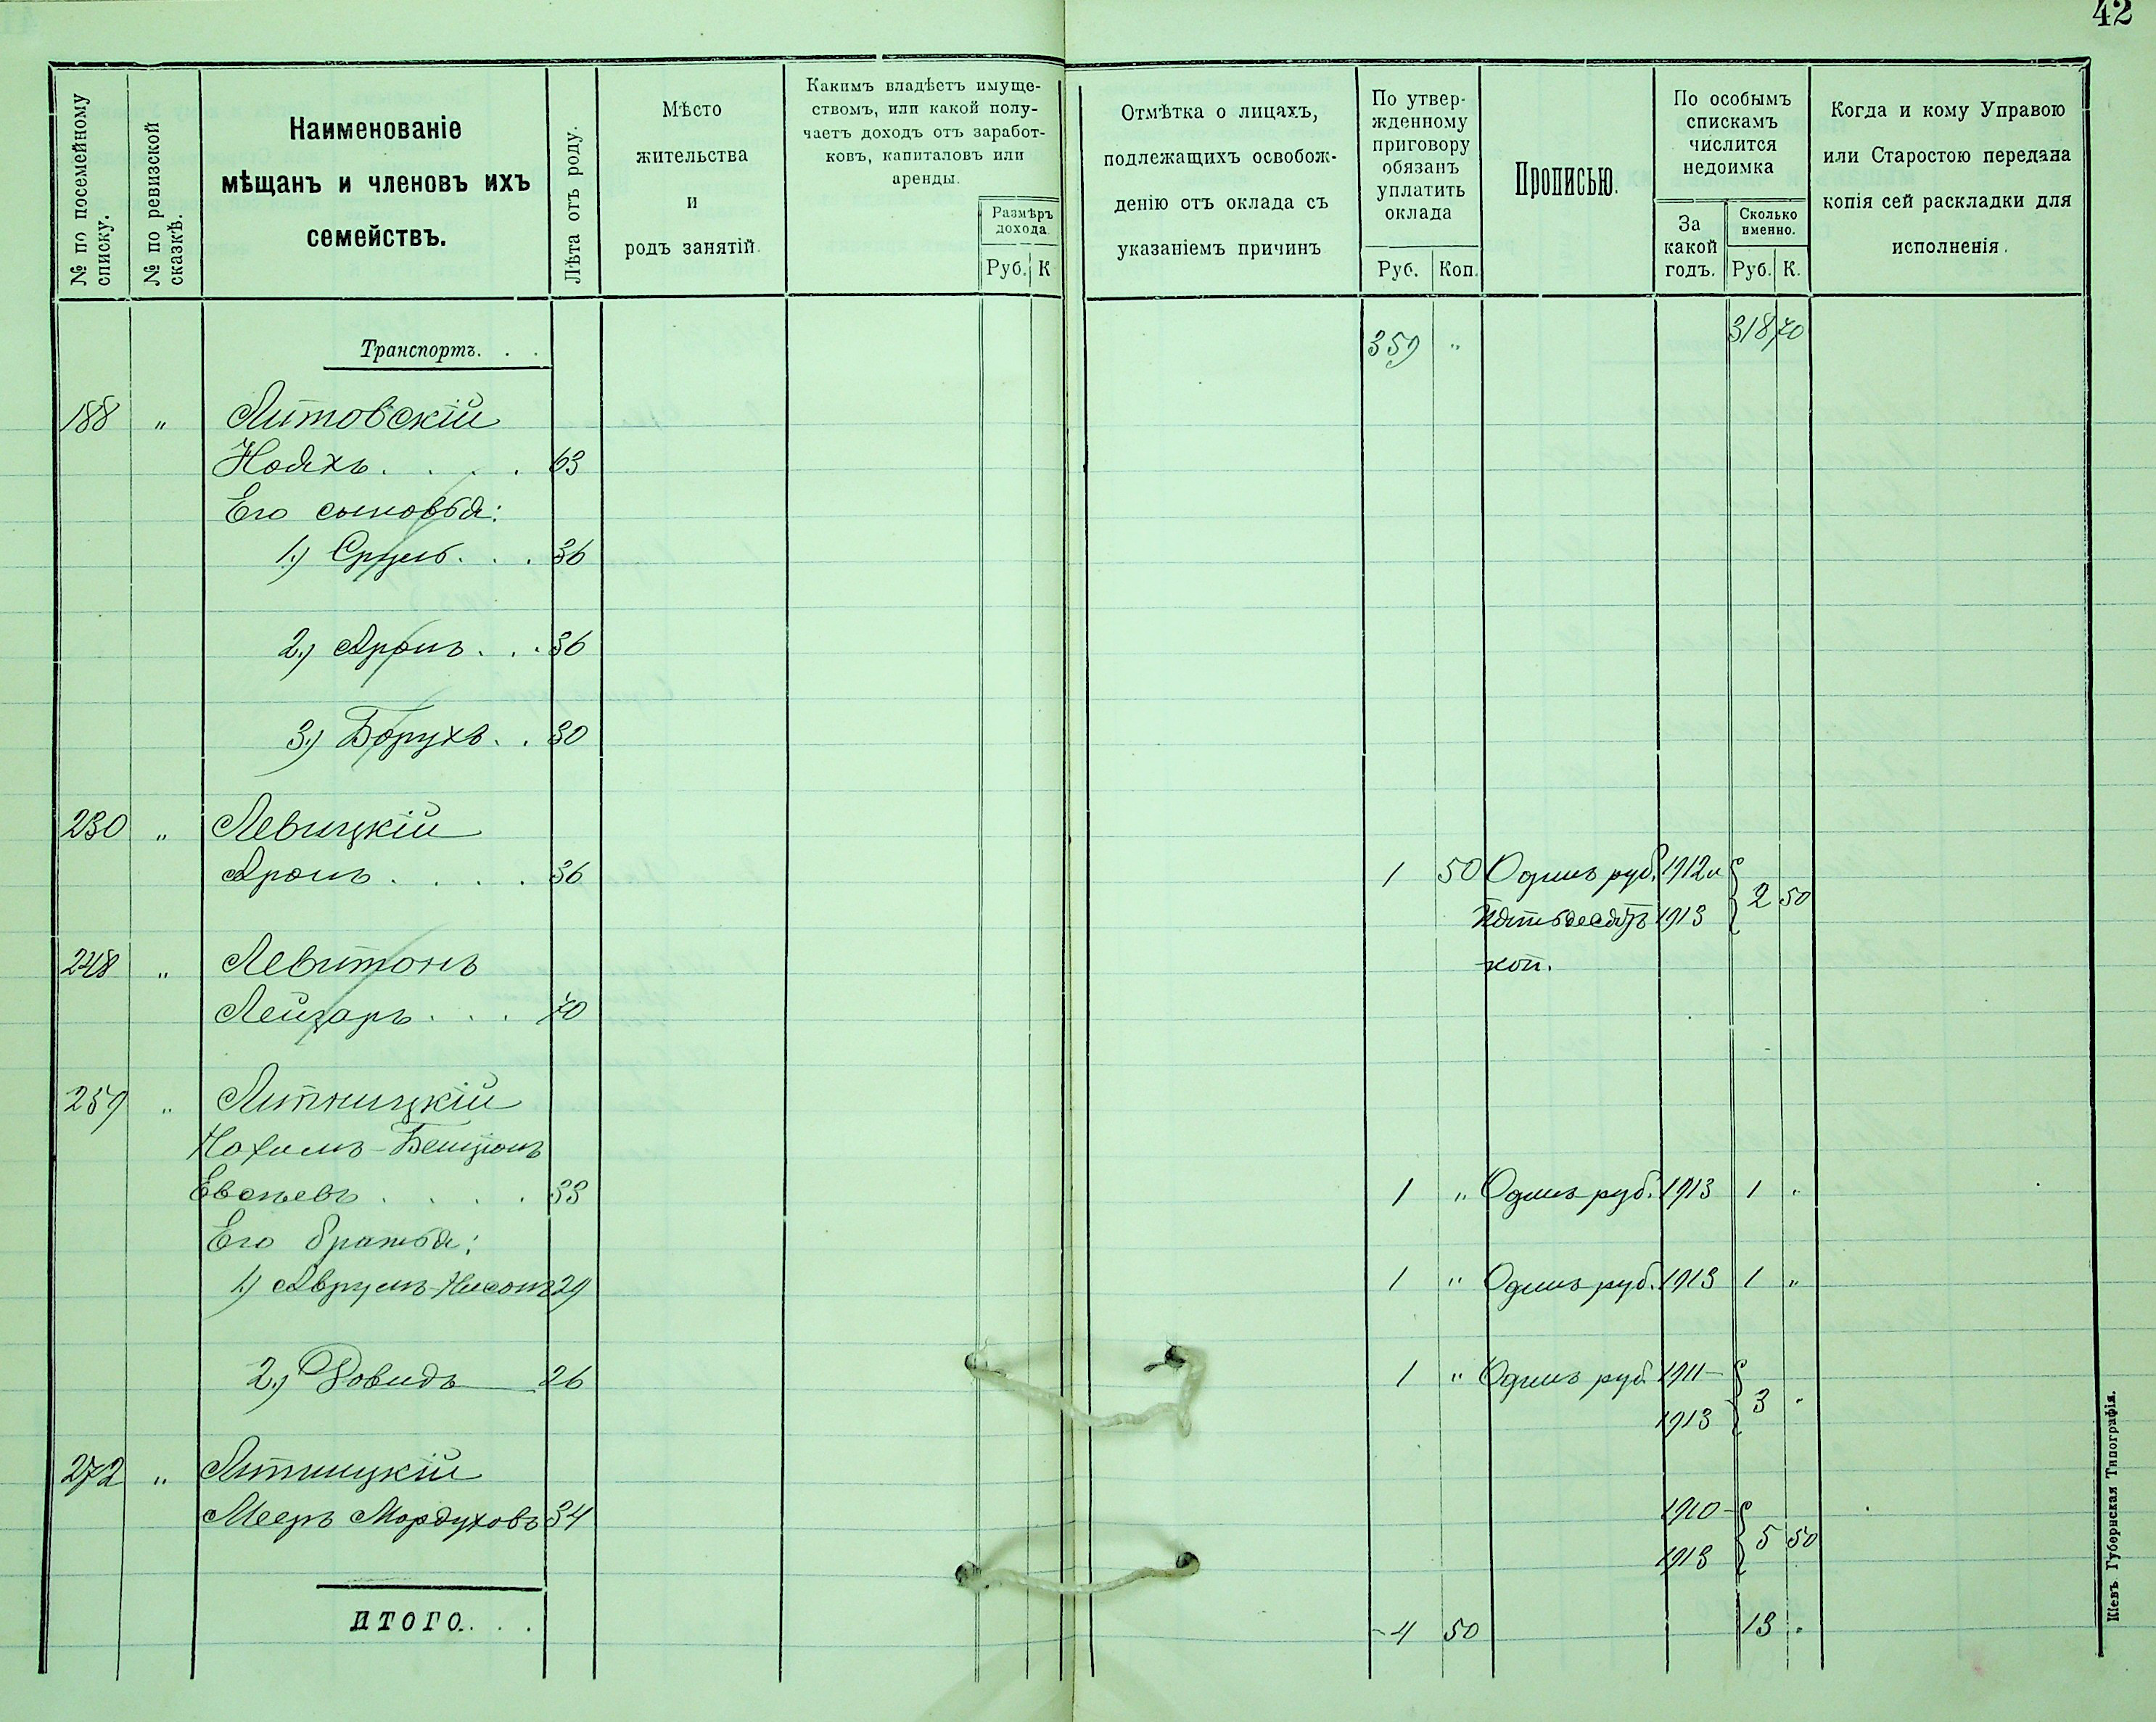 42
№ по посемейному списку.
№ по ревизской сказкѣ.
Наименованіе
мѣщанъ и членовъ ихъ
семействъ.
Лѣта отъ роду.
Мѣсто
жительства
и
родъ занятій.
Какимъ владѣетъ имуще-
ствомъ, или какой полу-
чаетъ доходъ отъ заработ-
ковъ, капиталовъ или
аренды.
Размѣръ
дохода
Руб. К
Отмѣтка о лицахъ,
подлежащихъ освобож-
денію отъ оклада съ
указаніемъ причинъ
По утвер-
жденному
приговору
обязанъ
уплатить
оклада
Руб. Коп.
Прописью.
По особымъ
спискамъ
числится
недоимка
За
какой
годъ.
Сколько
именно.
Руб. К.
Когда и кому Управою
или Старостою передана
копія сей раскладки для
исполненія.
Транспортъ. . . 359 „ 318 70
188 „ Литовскій
Нояхъ . . . . 63
Его сыновья:
1.) Сруль . . . 36
2.) Аронъ . . . 36
3.) Борухъ . . 30
230 „ Левицкій
Аронъ . . . . 36 1 50 Одинъ руб. 1912 и } 2 50
Пятьдесятъ 1913
248 „ Левитонъ коп.
Лейзоръ . . . 70
259 „ Литницкій
Нохимъ-Бенціонъ
Евсѣевъ . . . . 33 1 „ Одинъ руб. 1913 1 „
Его братья:
1.) Аврумъ-Нисонъ 29 1 „ Одинъ руб. 1913 1 „
2.) Довидъ 26 1 „ Одинъ руб. 1911- } 3 „
1913
272 „ Литницкій
Мееръ Мордуховъ 34 1910- } 5 50
1913
ИТОГО. . . 4 50 13 „
Кіевъ Губернская Типографія.